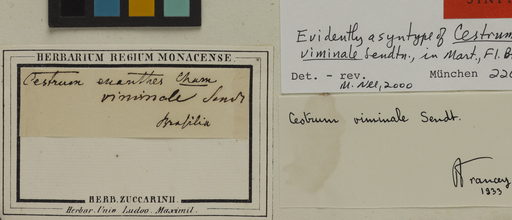 HERBARIUM REGIUM MONACENSE.
Cestrum Cham
viminale Sendt
Brasilia
HERB. ZUCCARINII.
Herbar. Univ. Ludov. Maximil.
Evidently a syntype of Cestrum
viminale Sendtn., in Mart., Fl. B
Det. - rev. München 220
M. Nee, 2000
Cestrum viminale Sendt.
Francey
1933